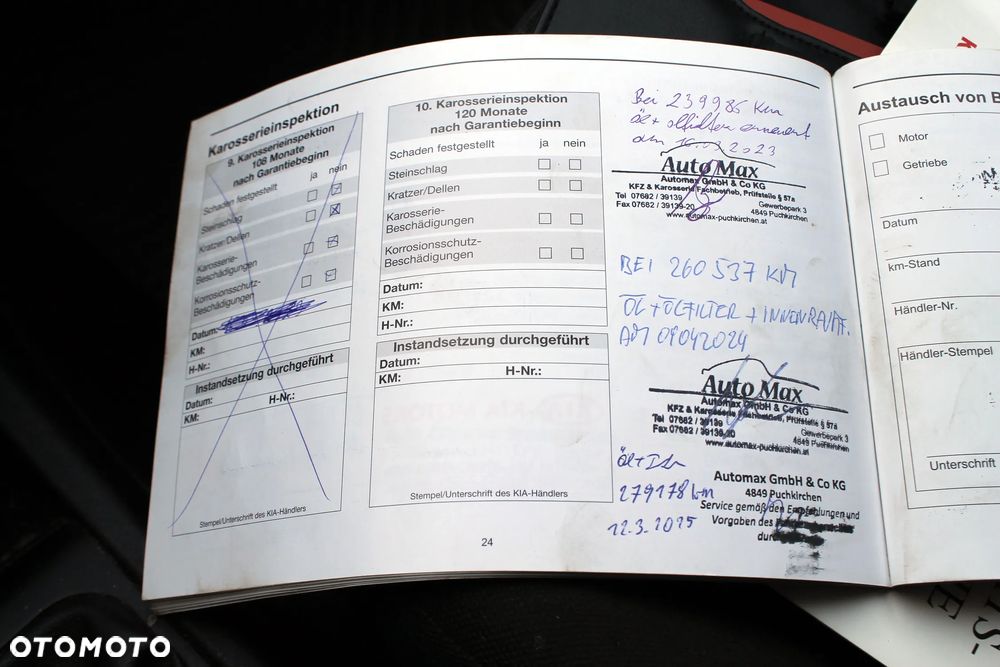 Karosserieinspektion
9. Karosserieinspektion
108 Monate
nach Garantiebeginn
ja nein
Schaden festgestellt
Steinschlag
Kratzer/Dellen
Karosserie-
Beschädigungen
Korrosionsschutz-
Beschädigungen
Datum:
KM:
H-Nr.:
Instandsetzung durchgeführt
Datum:
H-Nr.:
KM:
Stempel/Unterschrift des KIA-Händlers
10. Karosserieinspektion
120 Monate
nach Garantiebeginn
Schaden festgestellt ja nein
Steinschlag
Kratzer/Dellen
Karosserie-
Beschädigungen
Korrosionsschutz-
Beschädigungen
Datum:
KM:
H-Nr.:
Instandsetzung durchgeführt
Datum:
KM: H-Nr.:
Stempel/Unterschrift des KIA-Händlers
24
Bei 239986 Km
Öl + Ölfilter erneuert
2023
Auto Max
Automax GmbH & Co KG
KFZ & Karosserie Fachbetrieb, Prüfstelle § 57a
Tel 07682 / 39139 Gewerbepark 3
Fax 07682 / 39139-20 4849 Puchkirchen
www.automax-puchkirchen
BEI 260537 KM
ÖL + ÖLFILTER + INNENRAUMF.
AM 09042024
Auto Max
Automax GmbH & Co KG
KFZ & Karosserie Fachbetrieb, Prüfstelle § 57a
Tel 07682 / 39139 Gewerbepark 3
Fax 07682 / 39139-20 4849 Puchkirchen
www.automax-puchkirchen
Öl +
279178 km
12.3.2025
Automax GmbH & Co KG
4849 Puchkirchen
Service gemäß den Empfehlungen und
Vorgaben des
durch
Austausch von B
Motor
Getriebe
Datum
km-Stand
Händler-Nr.
Händler-Stempel
Unterschrift
OTOMOTO